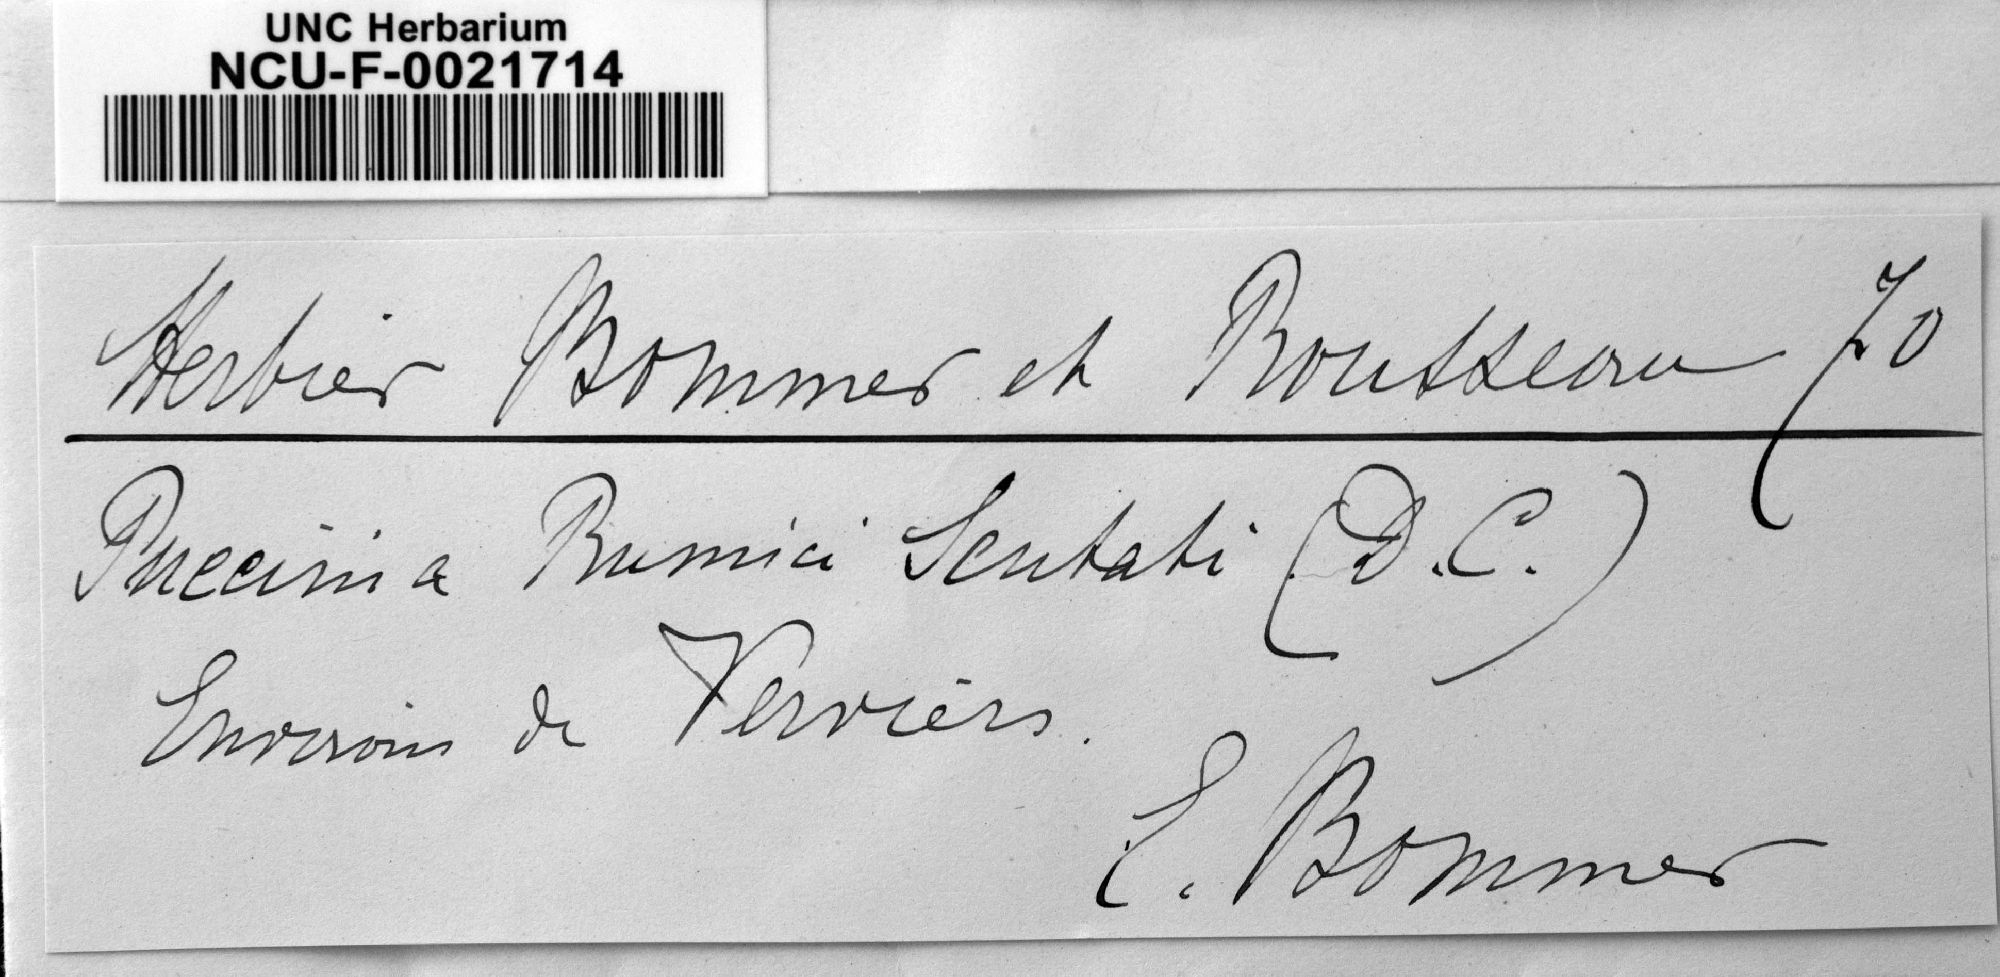 UNC Herbarium
NCU-F-0021714
Herbier Bommer et Rousseau 70
Puccinia Rumici Scutati (D.C.)
Environs de Verviers.
E. Bommer